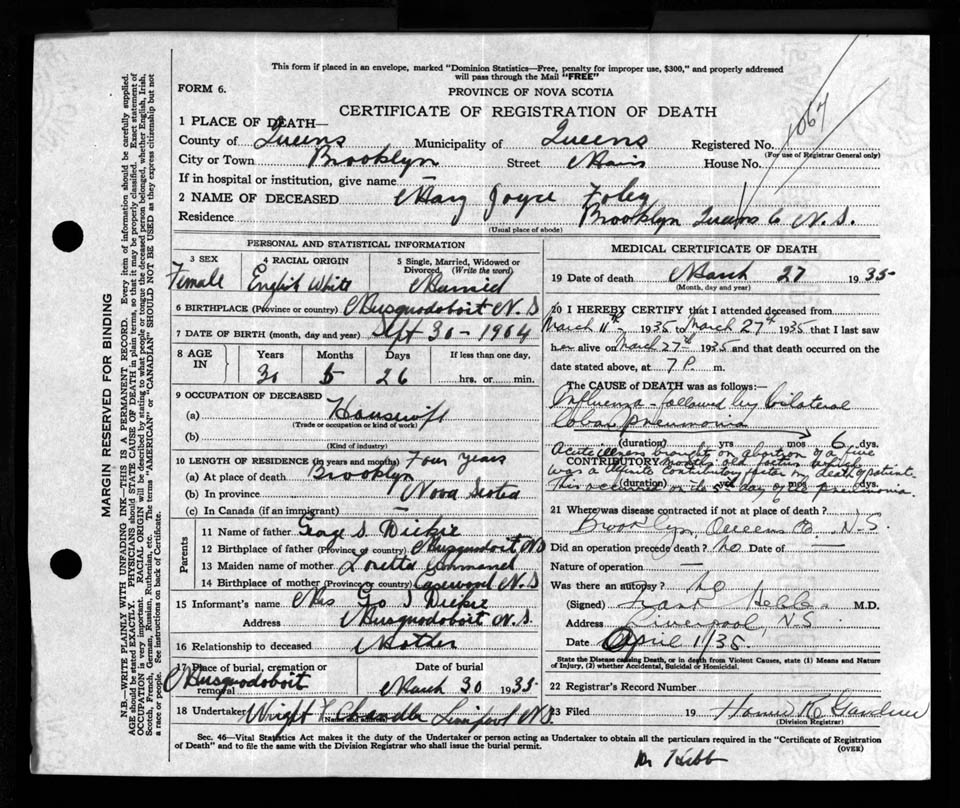 This form if placed in an envelope, marked "Dominion Statistics—Free, penalty for improper use, $300," and properly addressed
will pass through the Mail "FREE"
FORM 6.
PROVINCE OF NOVA SCOTIA
CERTIFICATE OF REGISTRATION OF DEATH
1067
1 PLACE OF DEATH—
County of Queens Municipality of Queens Registered No.
(For use of Registrar General only)
City or Town Brooklyn Street Main House No.
If in hospital or institution, give name —
2 NAME OF DECEASED Mary Joyce Foley
Residence Brooklyn Queens Co N.S.
(Usual place of abode)
MARGIN RESERVED FOR BINDING
N.B.—WRITE PLAINLY WITH UNFADING INK—THIS IS A PERMANENT RECORD. Every item of information should be carefully supplied.
AGE should be stated EXACTLY. PHYSICIANS should STATE CAUSE OF DEATH in plain terms, so that it may be properly classified. Exact statement of
OCCUPATION is very important. RACIAL ORIGIN will be described by stating to what people or tongue the deceased person belonged, whether English, Irish,
Scotch, French, German, Russian, Ruthenian, etc. The terms "AMERICAN" or "CANADIAN" SHOULD NOT BE USED as they express citizenship but not
a race or people. See instructions on back of Certificate.
PERSONAL AND STATISTICAL INFORMATION
3 SEX
Female
4 RACIAL ORIGIN
English White
5 Single, Married, Widowed or
Divorced (Write the word)
Married
6 BIRTHPLACE (Province or country) Musquodoboit N.S
7 DATE OF BIRTH (month, day and year) Sept 30 - 1904
8 AGE IN
Years Months Days If less than one day,
30 5 26 hrs. or min.
9 OCCUPATION OF DECEASED
(a) Housewife
(Trade or occupation or kind of work)
(b)
(Kind of industry)
10 LENGTH OF RESIDENCE (in years and months) Four years
(a) At place of death Brooklyn
(b) In province Nova Scotia
(c) In Canada (if an immigrant) —
Parents
11 Name of father George S Dickie
12 Birthplace of father (Province or country) Musquodoboit N.S
13 Maiden name of mother Loretta
14 Birthplace of mother (Province or country) N.S
15 Informant's name Mrs Geo S Dickie
Address Musquodoboit N.S.
16 Relationship to deceased Mother
17 Place of burial, cremation or
removal
Musquodoboit
Date of burial
March 30 1935
18 Undertaker Wright V Chandler Liverpool N.S.
MEDICAL CERTIFICATE OF DEATH
19 Date of death March 27 1935
(Month, day and year)
20 I HEREBY CERTIFY that I attended deceased from
March 11th 1935 to March 27th 1935 that I last saw
her alive on March 27th 1935 and that death occurred on the
date stated above, at 7 P. m.
The CAUSE of DEATH was as follows:—
Influenza - followed by bilateral
lobar pneumonia
(duration) yrs mos 6 dys.
Acute illness brought on abortion of a five
CONTRIBUTORY months old foetus which
was a contributory factor in death of patient.
(duration) yrs mos dys.
This occurred on the 5th day of the pneumonia.
21 Where was disease contracted if not at place of death?
Brooklyn, Queens Co. N.S.
Did an operation precede death? no Date of —
Nature of operation —
Was there an autopsy? no
(Signed) Hebb M.D.
Address Liverpool, N.S.
Date April 1/35.
State the Disease causing Death, or in death from Violent Causes, state (1) Means and Nature
of Injury, (2) whether Accidental, Suicidal or Homicidal.
22 Registrar's Record Number
23 Filed 19 Homer R Gardner
(Division Registrar)
Sec. 46—Vital Statistics Act makes it the duty of the Undertaker or person acting as Undertaker to obtain all the particulars required in the "Certificate of Registration
of Death" and to file the same with the Division Registrar who shall issue the burial permit.
(OVER)
Dr Hebb